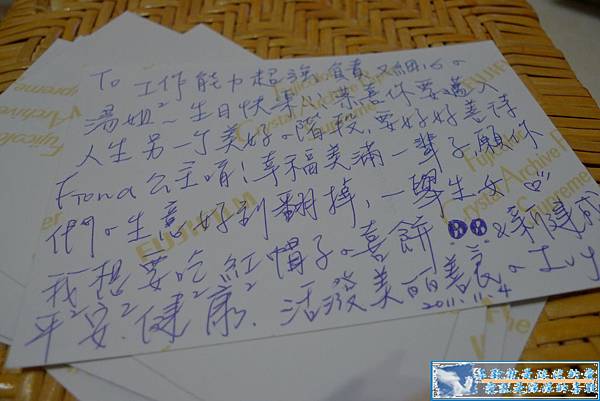 To 工作能力超強負責又細心の
湯姐²~生日快樂!! 恭喜你要邁入
人生另一个美好の階段,要好好善待
Fiona公主唷!幸福美滿一輩子願你
們。生意好到翻掉,一舉生女♡
我想要吃紅帽子の喜餅 &新建成
平²安²健²康². 活發美麗善良の Ivy
2011.11.4
FUJIFILM
Fujicolor
Crystal Archive
Supreme